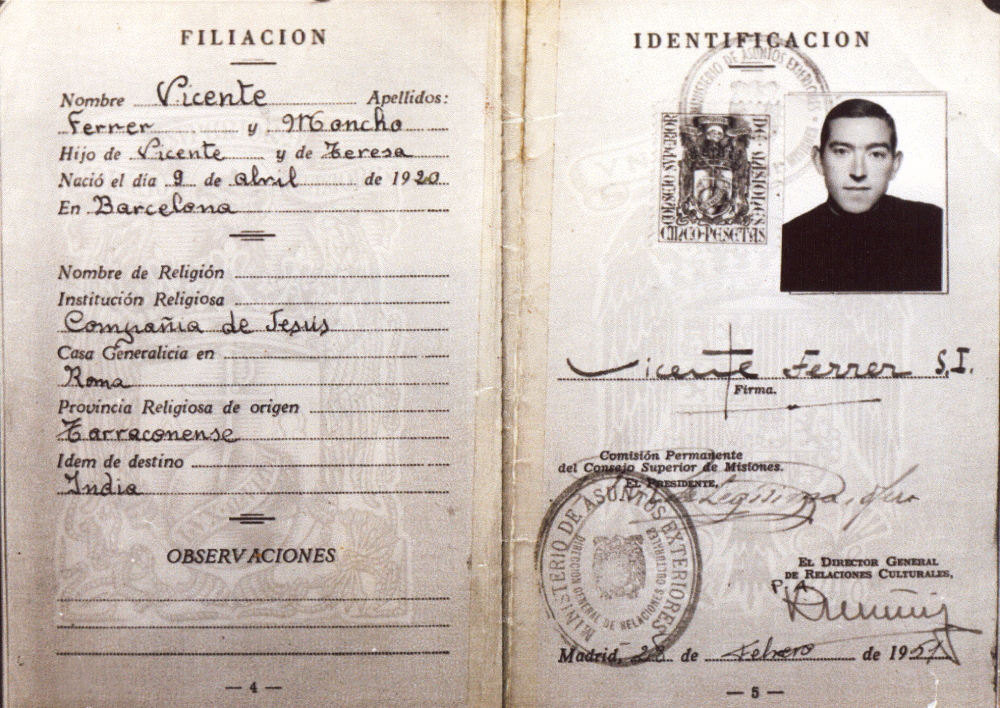 FILIACION
Nombre Vicente Apellidos:
Ferrer y Moncho
Hijo de Vicente y de Teresa
Nació el día 9 de abril de 1920
En Barcelona
Nombre de Religión
Institución Religiosa
Compañia de Jesús
Casa Generalicia en
Roma
Provincia Religiosa de origen
Tarraconense
Idem de destino
India
OBSERVACIONES
— 4 —
IDENTIFICACION
MINISTERIO DE ASUNTOS EXTERIORES
CONSEJO SUPERIOR
DE MISIONES
CINCO PESETAS
Vicente Ferrer S.I.
Firma.
Comisión Permanente
del Consejo Superior de Misiones.
EL PRESIDENTE,
MINISTERIO DE ASUNTOS EXTERIORES
DIRECCION GENERAL DE RELACIONES CULTURALES
EL DIRECTOR GENERAL
DE RELACIONES CULTURALES,
P. A.
Madrid, 28 de Febrero de 1951
— 5 —